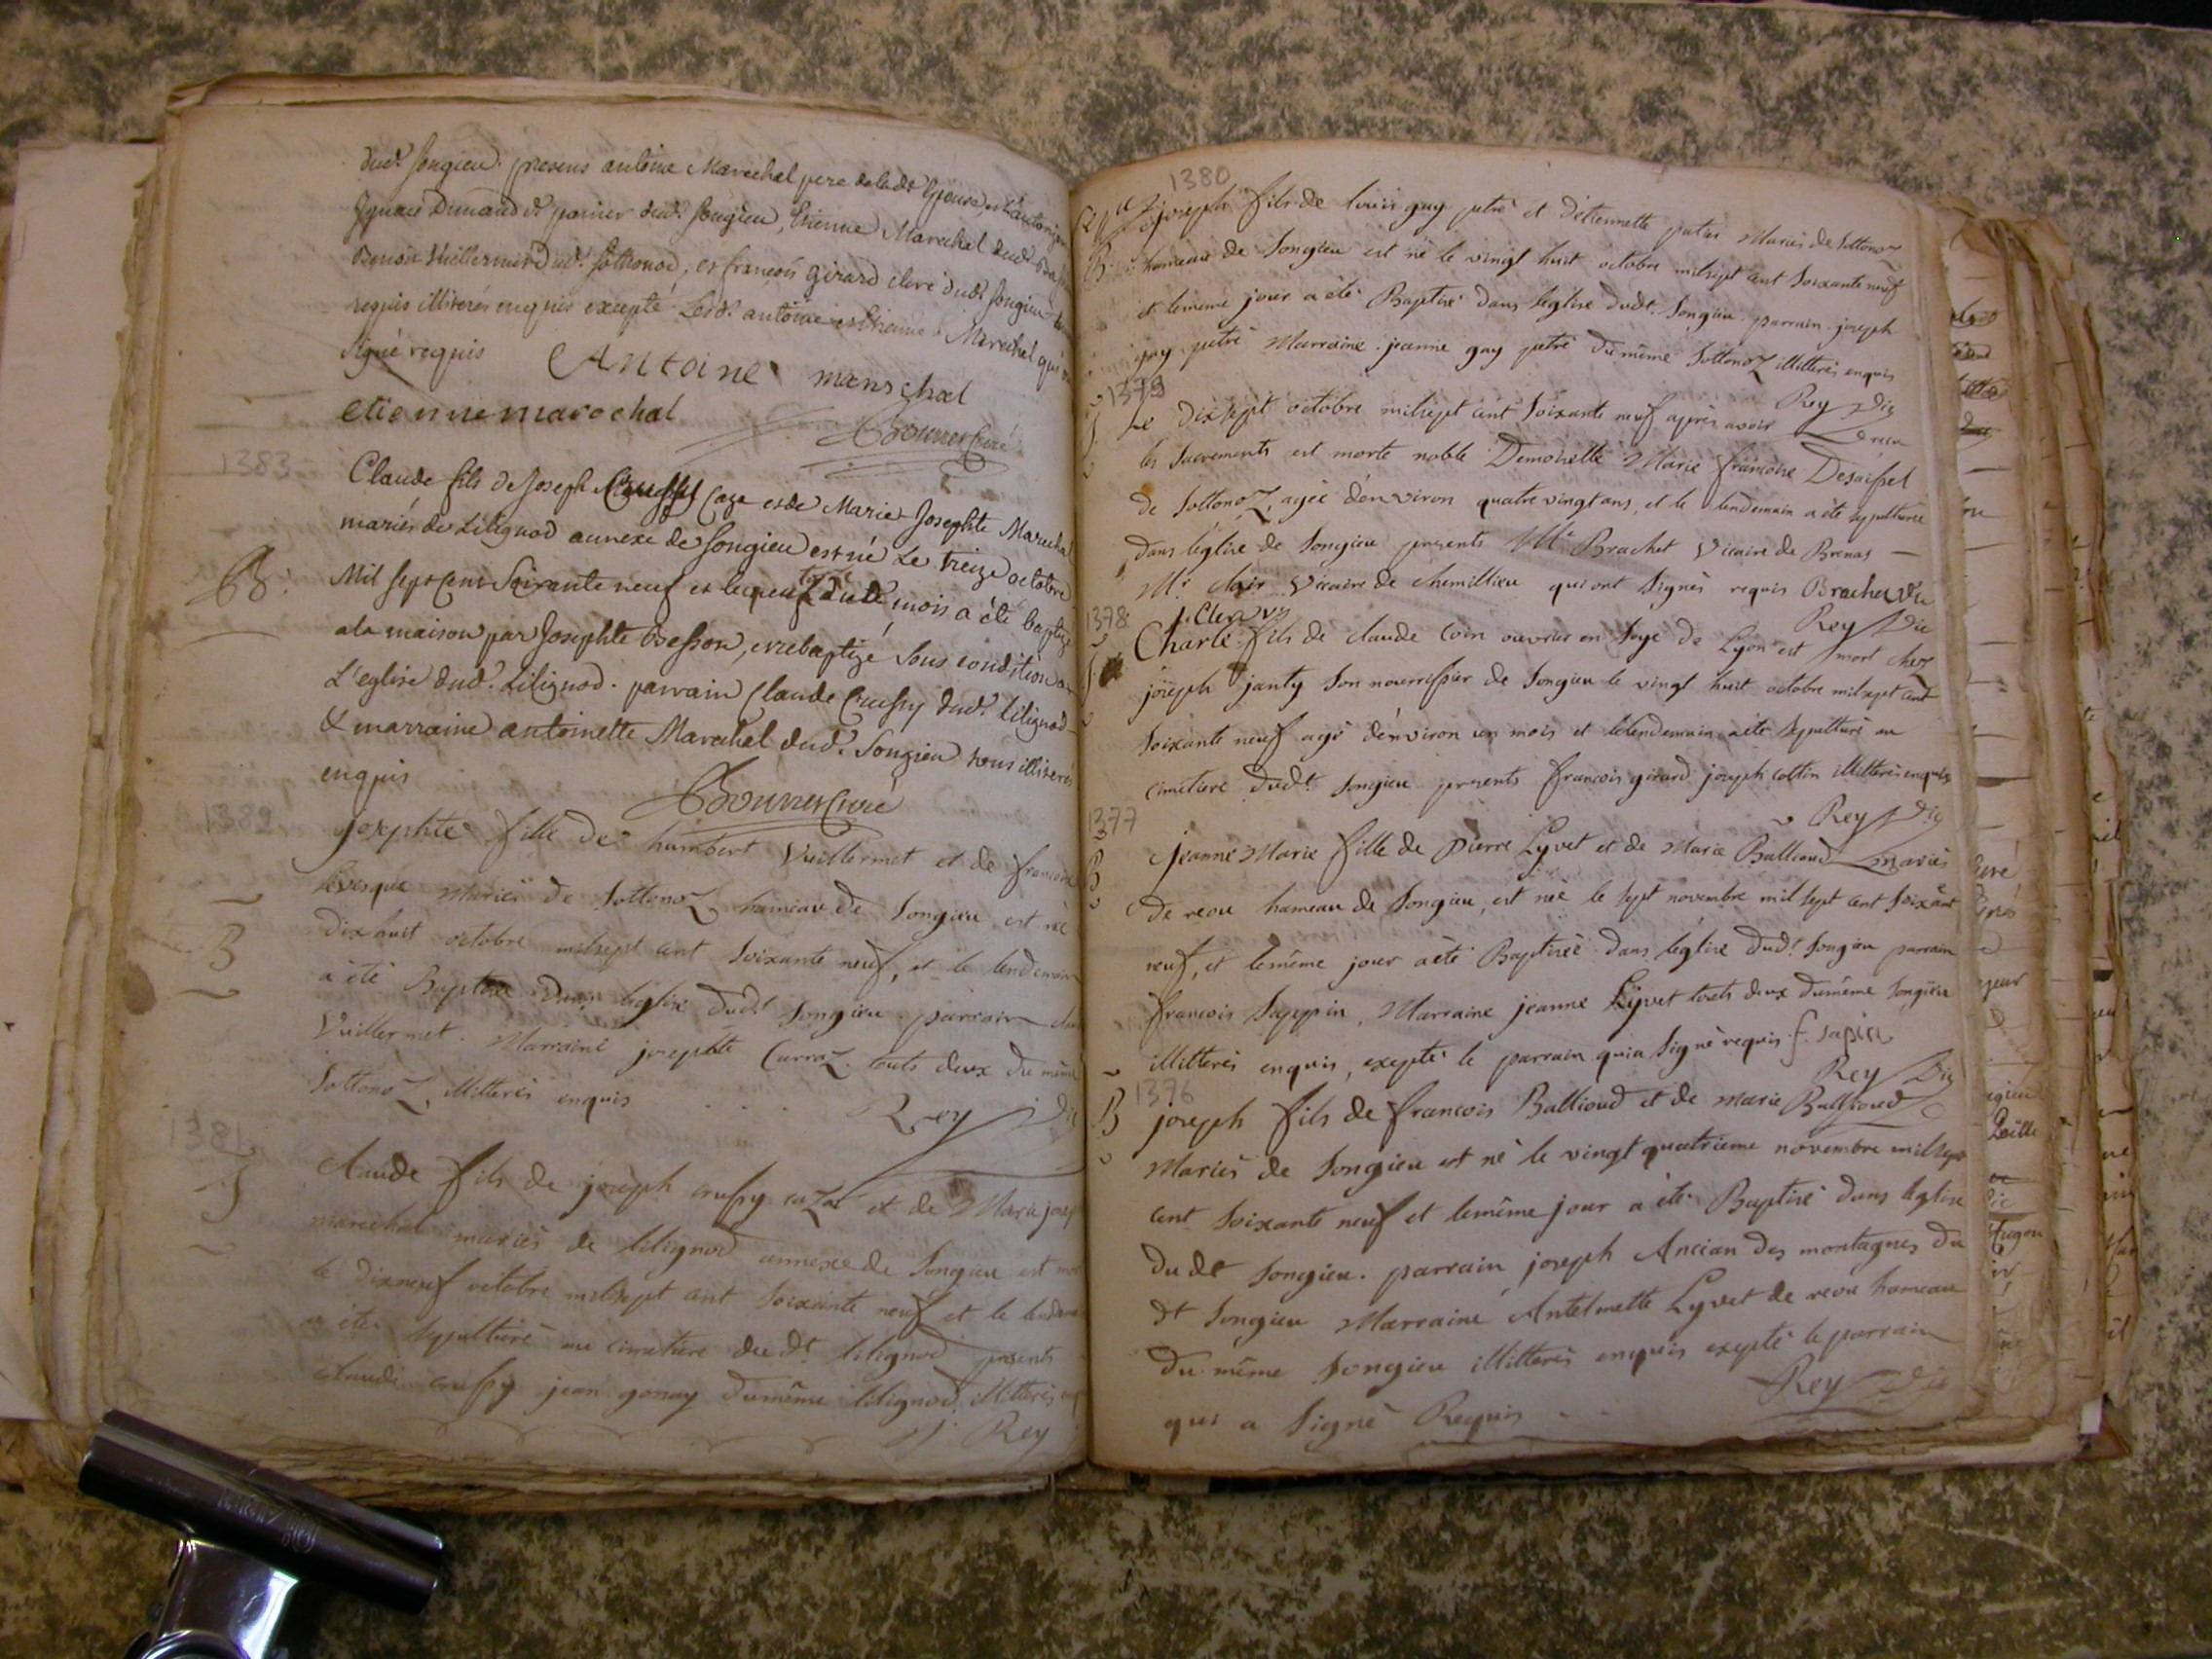 dudt Songieu. presens antoine Marechal pere de ladt Epouse,
Ignace Dunand dt parnier dudt Songieu, Etienne Marechal dudt
Benoit Vuillermet dudt Sothonod, et françois girard clerc dudt Songieu
requis illiterés enquis excepté Lesdt antoine et Etienne Marechal qui
signé requis Antoine mareschal
etienne marechal
Bonnet Curé
1383
Claude fils de Joseph Crussy Caza et de Marie Josephte Marechal
mariés de Lilignod annexe de Songieu est né Le treize octobre
B. Mil Sept Cent Soixante neuf et le dudt mois a été baptizé
a la maison par Josephte Besson, et rebaptizé Sous condition
L'eglise dudt Lilignod. parrain Claude Crussy dudt lilignod
& marraine antoinette Marechal dudt Songieu tous illiterés
enquis
Bonnet Curé
1382
josephte fille de humbert Vuillermet et de francoise
levesque Mariés de Sottonoz hameau de Songieu est née
B dixhuit octobre milsept cent Soixante neuf, et le lendemain
a été Baptisée dans leglise dudt Songieu parrain
Vuillermet. Marraine josephte Curraz touts deux du même
Sottonoz, illitterés enquis
Rey Vic
1381
S Claude fils de joseph crussy caza et de Marie josep
marechal mariés de lilignod annexe de Songieu est mort
le dixneuf octobre milsept cent Soixante neuf et le
a été sepulturé au cimetiere dudt lilignod presents
claude crussy jean gonay du même lilignod illitterés
Rey
1380
joseph fils de louis guy petré et d'etiennette mariés de Sottonoz
B hameau de Songieu est né le vingt huit octobre milsept cent Soixante neuf
et lemême jour a été Baptisé dans leglise dudt Songieu parrain joseph
guy petré Marraine jeanne guy petré du même Sottonoz illitterés enquis
Rey Vic
1379
S Le dixsept octobre milsept cent Soixante neuf après avoir recu
les Sacrements est morte noble Demoiselle Marie francoise Desaissel
de Sottonoz, agée d'environ quatre vingt ans, et le lendemain a été sepulturée
dans leglise de Songieu presents Mr Brachet Vicaire de Brenas
Mr clerc Vicaire de chemillieu qui ont signés requis Brachet Vic
J. Clerc Vic
Rey Vic
1378
S Charle fils de claude Coin ouvrier en Soye de Lyon est mort chez
joseph janty son nourrissier de Songieu le vingt huit octobre milsept cent
Soixante neuf agé d'environ un mois et lelendemain a été Sepulturé au
cimetiere dudt Songieu presents francois girard joseph cottin illitterés enquis
Rey Vic
1377
B jeanne Marie fille de Pierre Lyvet et de Marie Ballioud mariés
de reou hameau de Songieu, est née le sept novembre mil sept cent Soixant
neuf, et lemême jour a été Baptisée dans leglise dudt Songieu parrain
francois Sappin, Marraine jeanne Lyvet touts deux dumême Songieu
illitterés enquis, exepté le parrain qui a signé requis f. sapin
Rey Vic
1376
B joseph fils de francois Ballioud et de marie Ballioud
Mariés de Songieu est né le vingt quatrieme novembre milsept
cent Soixante neuf et lemême jour a été Baptisé dans leglise
du dt Songieu. parrain joseph Ancian des montagnes du
dt Songieu Marraine Antelmette Lyvet de reou hameau
du même Songieu illitterés enquis exepté le parrain
qui a Signé Requis
Rey Vic